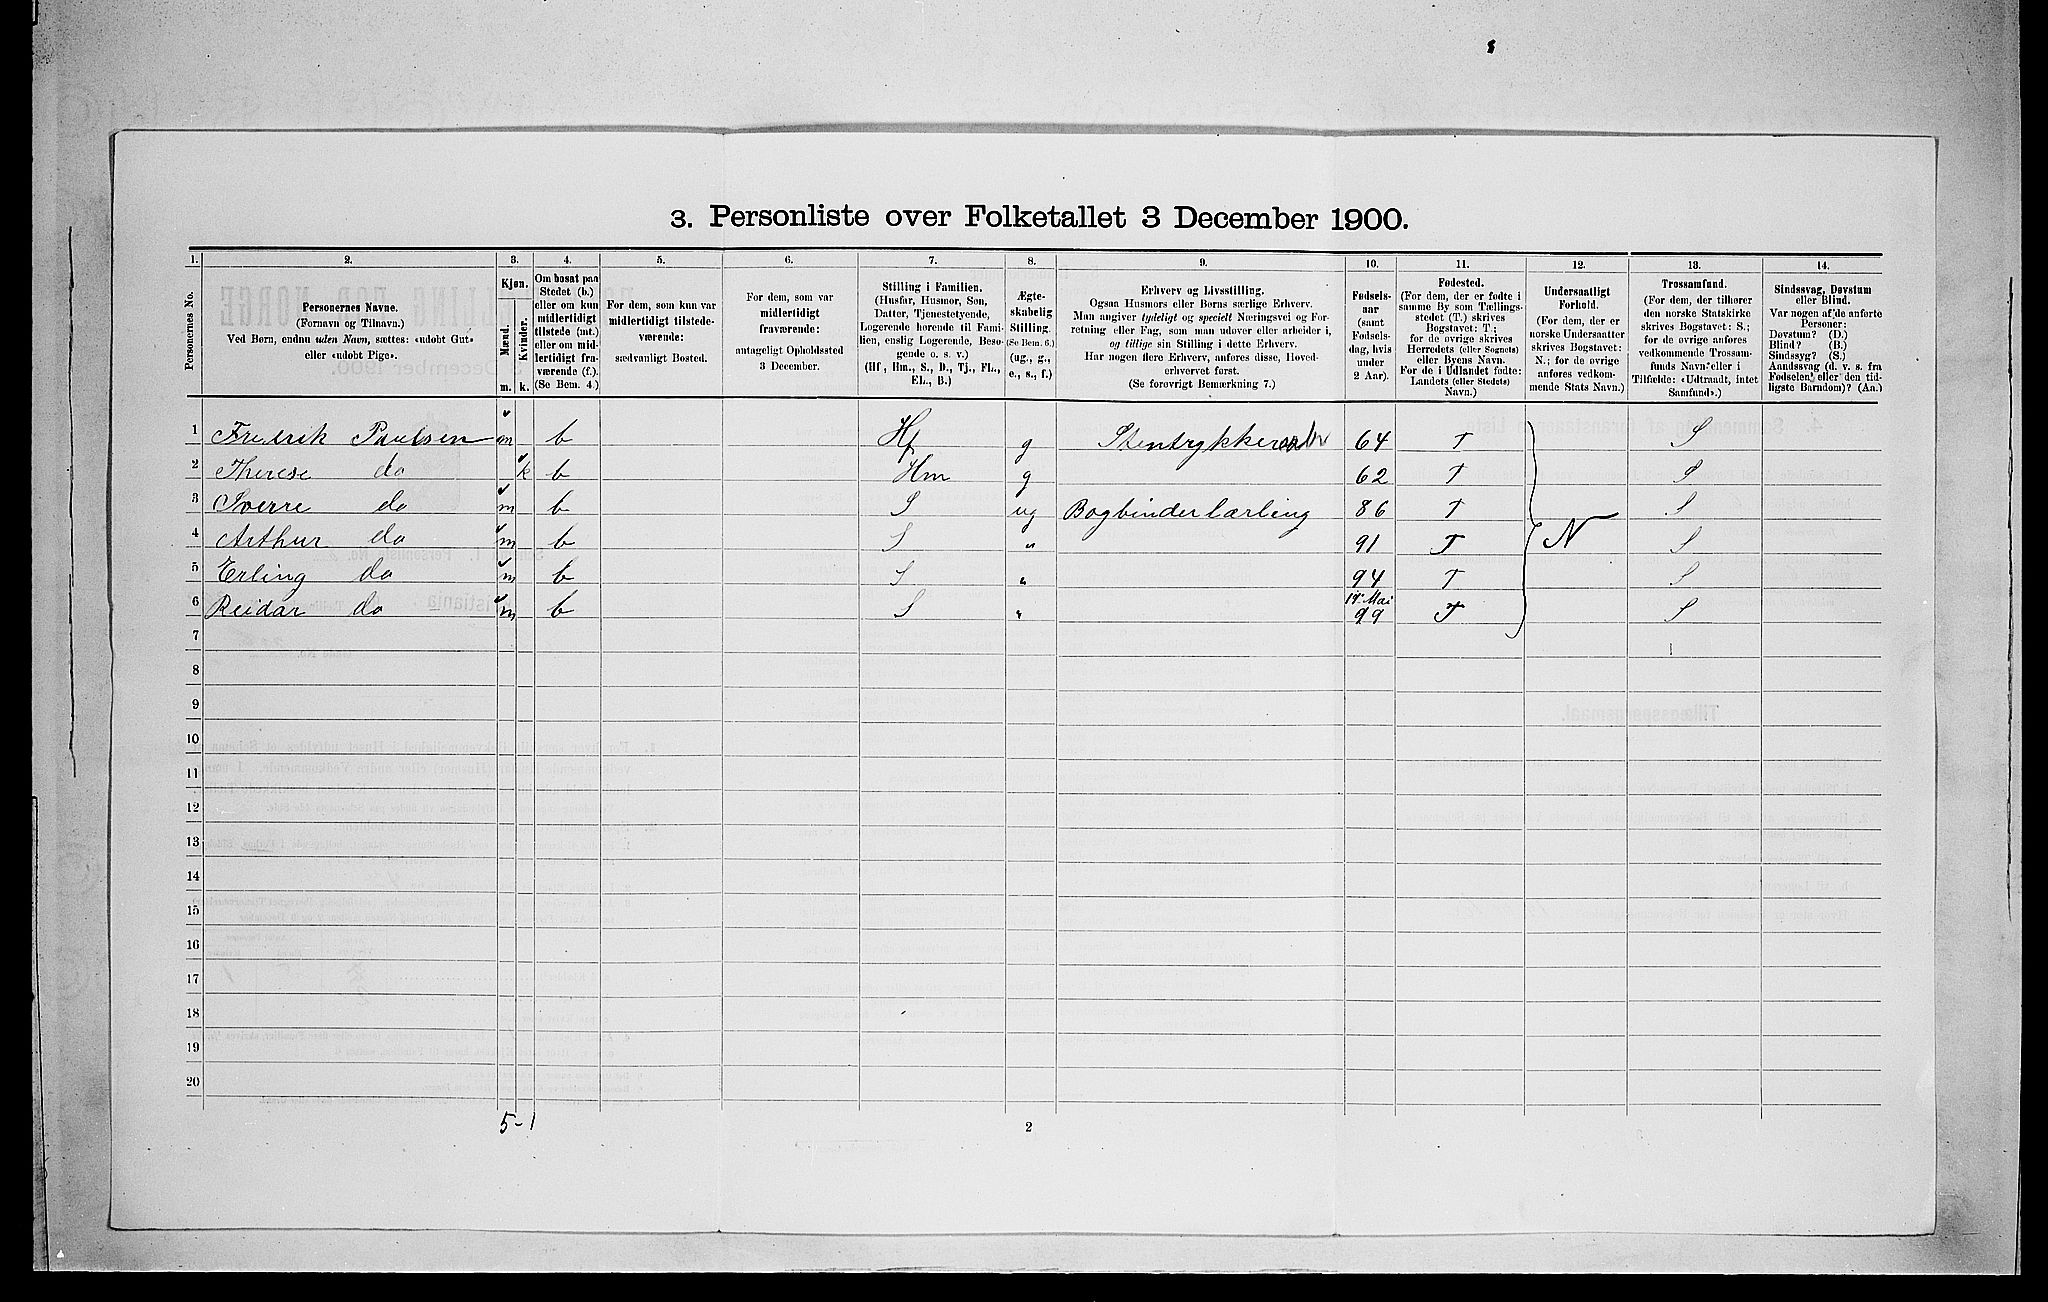 3. Personliste over Folketallet 3 December 1900.
1. 2. 3. 4. 5. 6. 7. 8. 9. 10. 11. 12. 13. 14.
Personernes No.
Personernes Navne.
(Fornavn og Tilnavn.)
Ved Børn, endnu uden Navn, sættes: «udøbt Gut»
eller «udøbt Pige».
Kjøn.
Mænd.
Kvinder.
m. k.
Om bosat paa
Stedet (b.)
eller om kun
midlertidigt
tilstede (mt.)
eller om mid-
lertidigt fra-
værende (f.).
(Se Bem. 4.)
For dem, som kun var
midlertidigt tilstede-
værende:
sædvanligt Bosted.
For dem, som var
midlertidigt
fraværende:
antageligt Opholdssted
3 December.
Stilling i Familien.
(Husfar, Husmor, Søn,
Datter, Tjenestetyende,
Logerende hørende til Fami-
lien, enslig Logerende, Besø-
gende o. s. v.)
(Hf, Hm., S., D., Tj., FL.,
EL., B.)
Ægte-
skabelig
Stilling.
(Se Bem. 6.)
(ug., g.,
e., s., f.)
Erhverv og Livsstilling.
Ogsaa Husmors eller Børns særlige Erhverv.
Man angiver tydeligt og specielt Næringsvei og For-
retning eller Fag, som man udøver eller arbeider i,
og tillige sin Stilling i dette Erhverv.
Har nogen flere Erhverv, anføres disse, Hoved-
erhvervet først.
(Se forøvrigt Bemærkning 7.)
Fødsels-
aar
(samt
Fødsels-
dag, hvis
under
2 Aar).
Fødested.
(For dem, der er fødte i
samme By som Tællings-
stedet (T.) skrives
Bogstavet: T.;
for de øvrige skrives
Herredets (eller Sognets)
eller Byens Navn.
For de i Udlandet fødte:
Landets (eller Stedets)
Navn.)
Undersaatligt
Forhold.
(For dem, der er
norske Undersaatter
skrives Bogstavet:
N.; for de øvrige
anføres vedkom-
mende Stats Navn.)
Trossamfund.
(For dem, der tilhører
den norske Statskirke
skrives Bogstavet: S.;
for de øvrige anføres
vedkommende Trossam-
funds Navn, eller i
Tilfælde: «Udtraadt, intet
Samfund».)
Sindssvag, Døvstum
eller Blind.
Var nogen af de anførte
Personer:
Døvstum? (D.)
Blind? (B.)
Sindssyg? (S.)
Aandssvag (d. v. s. fra
Fødselen eller den tid-
ligste Barndom)? (Aa.)
1 Fredrik Paulsen m b Hf g 64 T S
2 Therese do k b Hm g 62 T S
3 Sverre do m b S ug Bogbinderlærling 86 T S
4 Arthur do m b S " 91 T N S
5 Erling do m b S " 94 T S
6 Reidar do m b S " Mai 99 T S
7
8
9
10
11
12
13
14
15
16
17
18
19
20
5-1
2